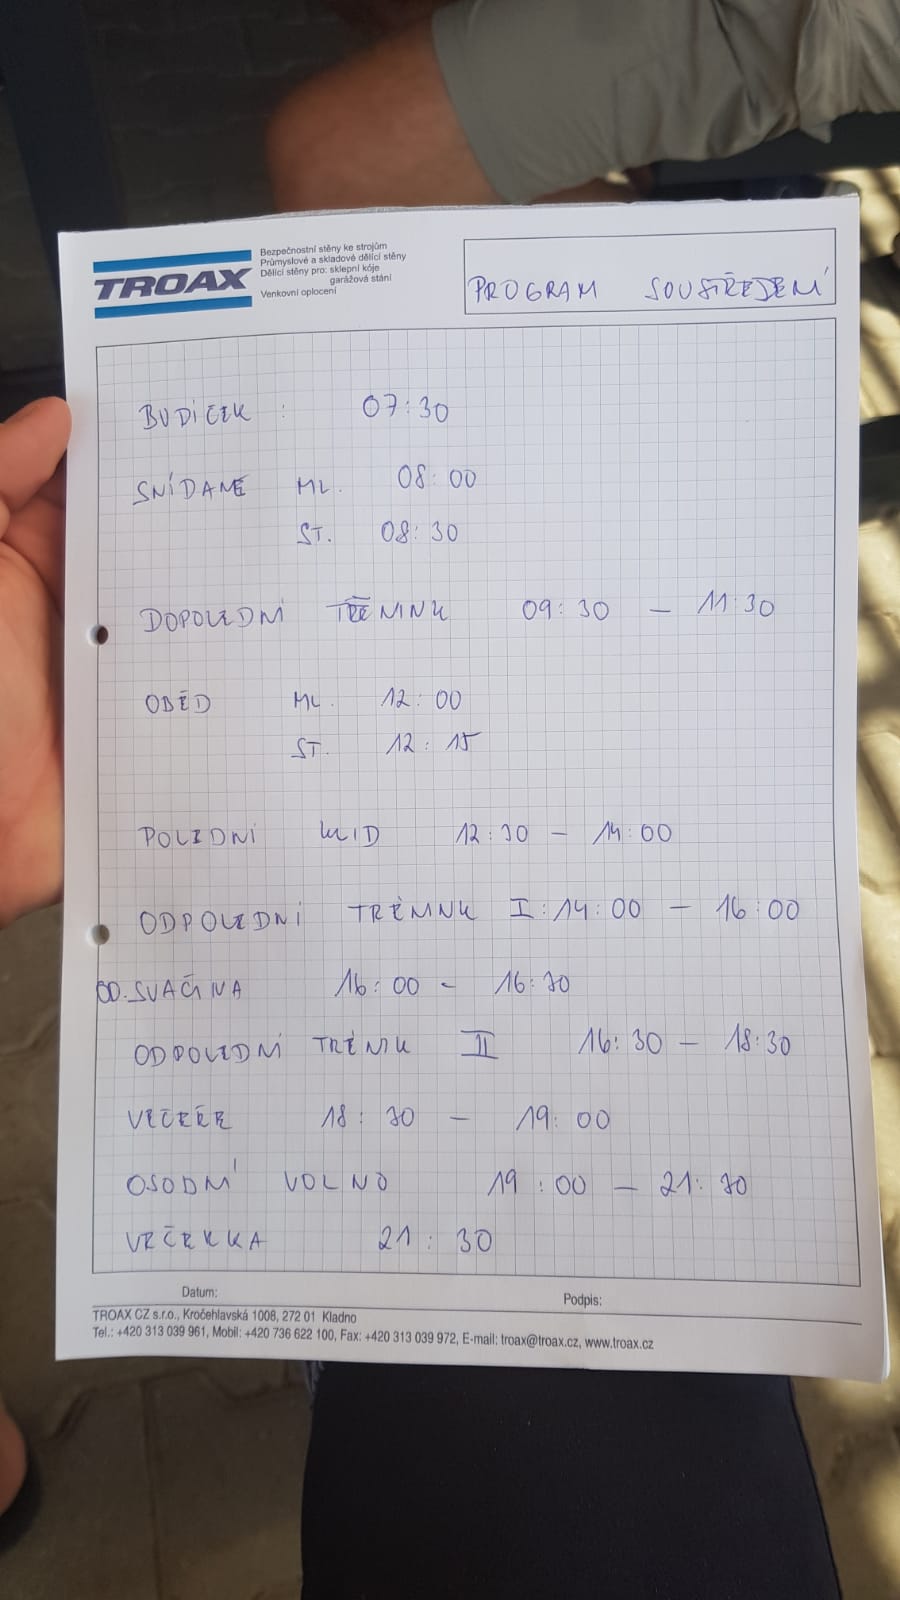 TROAX
Bezpečnostní stěny ke strojům
Průmyslové a skladové dělící stěny
Dělící stěny pro: sklepní kóje
garážová stání
Venkovní oplocení
PROGRAM SOUSTŘEDENÍ
BUDÍČEK : 07:30
SNÍDANĚ ML. 08:00
ST. 08:30
DOPOLEDNÍ TRÉNINK 09:30 – 11:30
OBĚD ML. 12:00
ST. 12:15
POLEDNÍ KLID 12:30 – 14:00
ODPOLEDNÍ TRÉNINK I: 14:00 – 16:00
OD. SVAČINA 16:00 – 16:30
ODPOLEDNÍ TRÉNIK II 16:30 – 18:30
VEČEŘE 18:30 – 19:00
OSOBNÍ VOLNO 19:00 – 21:30
VEČERKA 21:30
Datum: Podpis:
TROAX CZ s.r.o., Kročehlavská 1008, 272 01 Kladno
Tel.: +420 313 039 961, Mobil: +420 736 622 100, Fax: +420 313 039 972, E-mail: troax@troax.cz, www.troax.cz